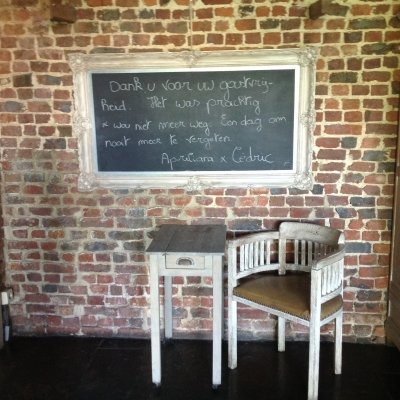 Dank u voor uw gastvrij-
heid. Het was prachtig
& wou niet meer weg. Een dag om
nooit meer te vergeten.
x Cédric